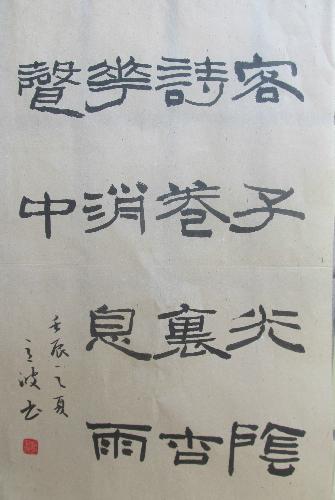 客子光陰
詩卷裏杏
花消息雨
聲中
壬辰之夏
波书